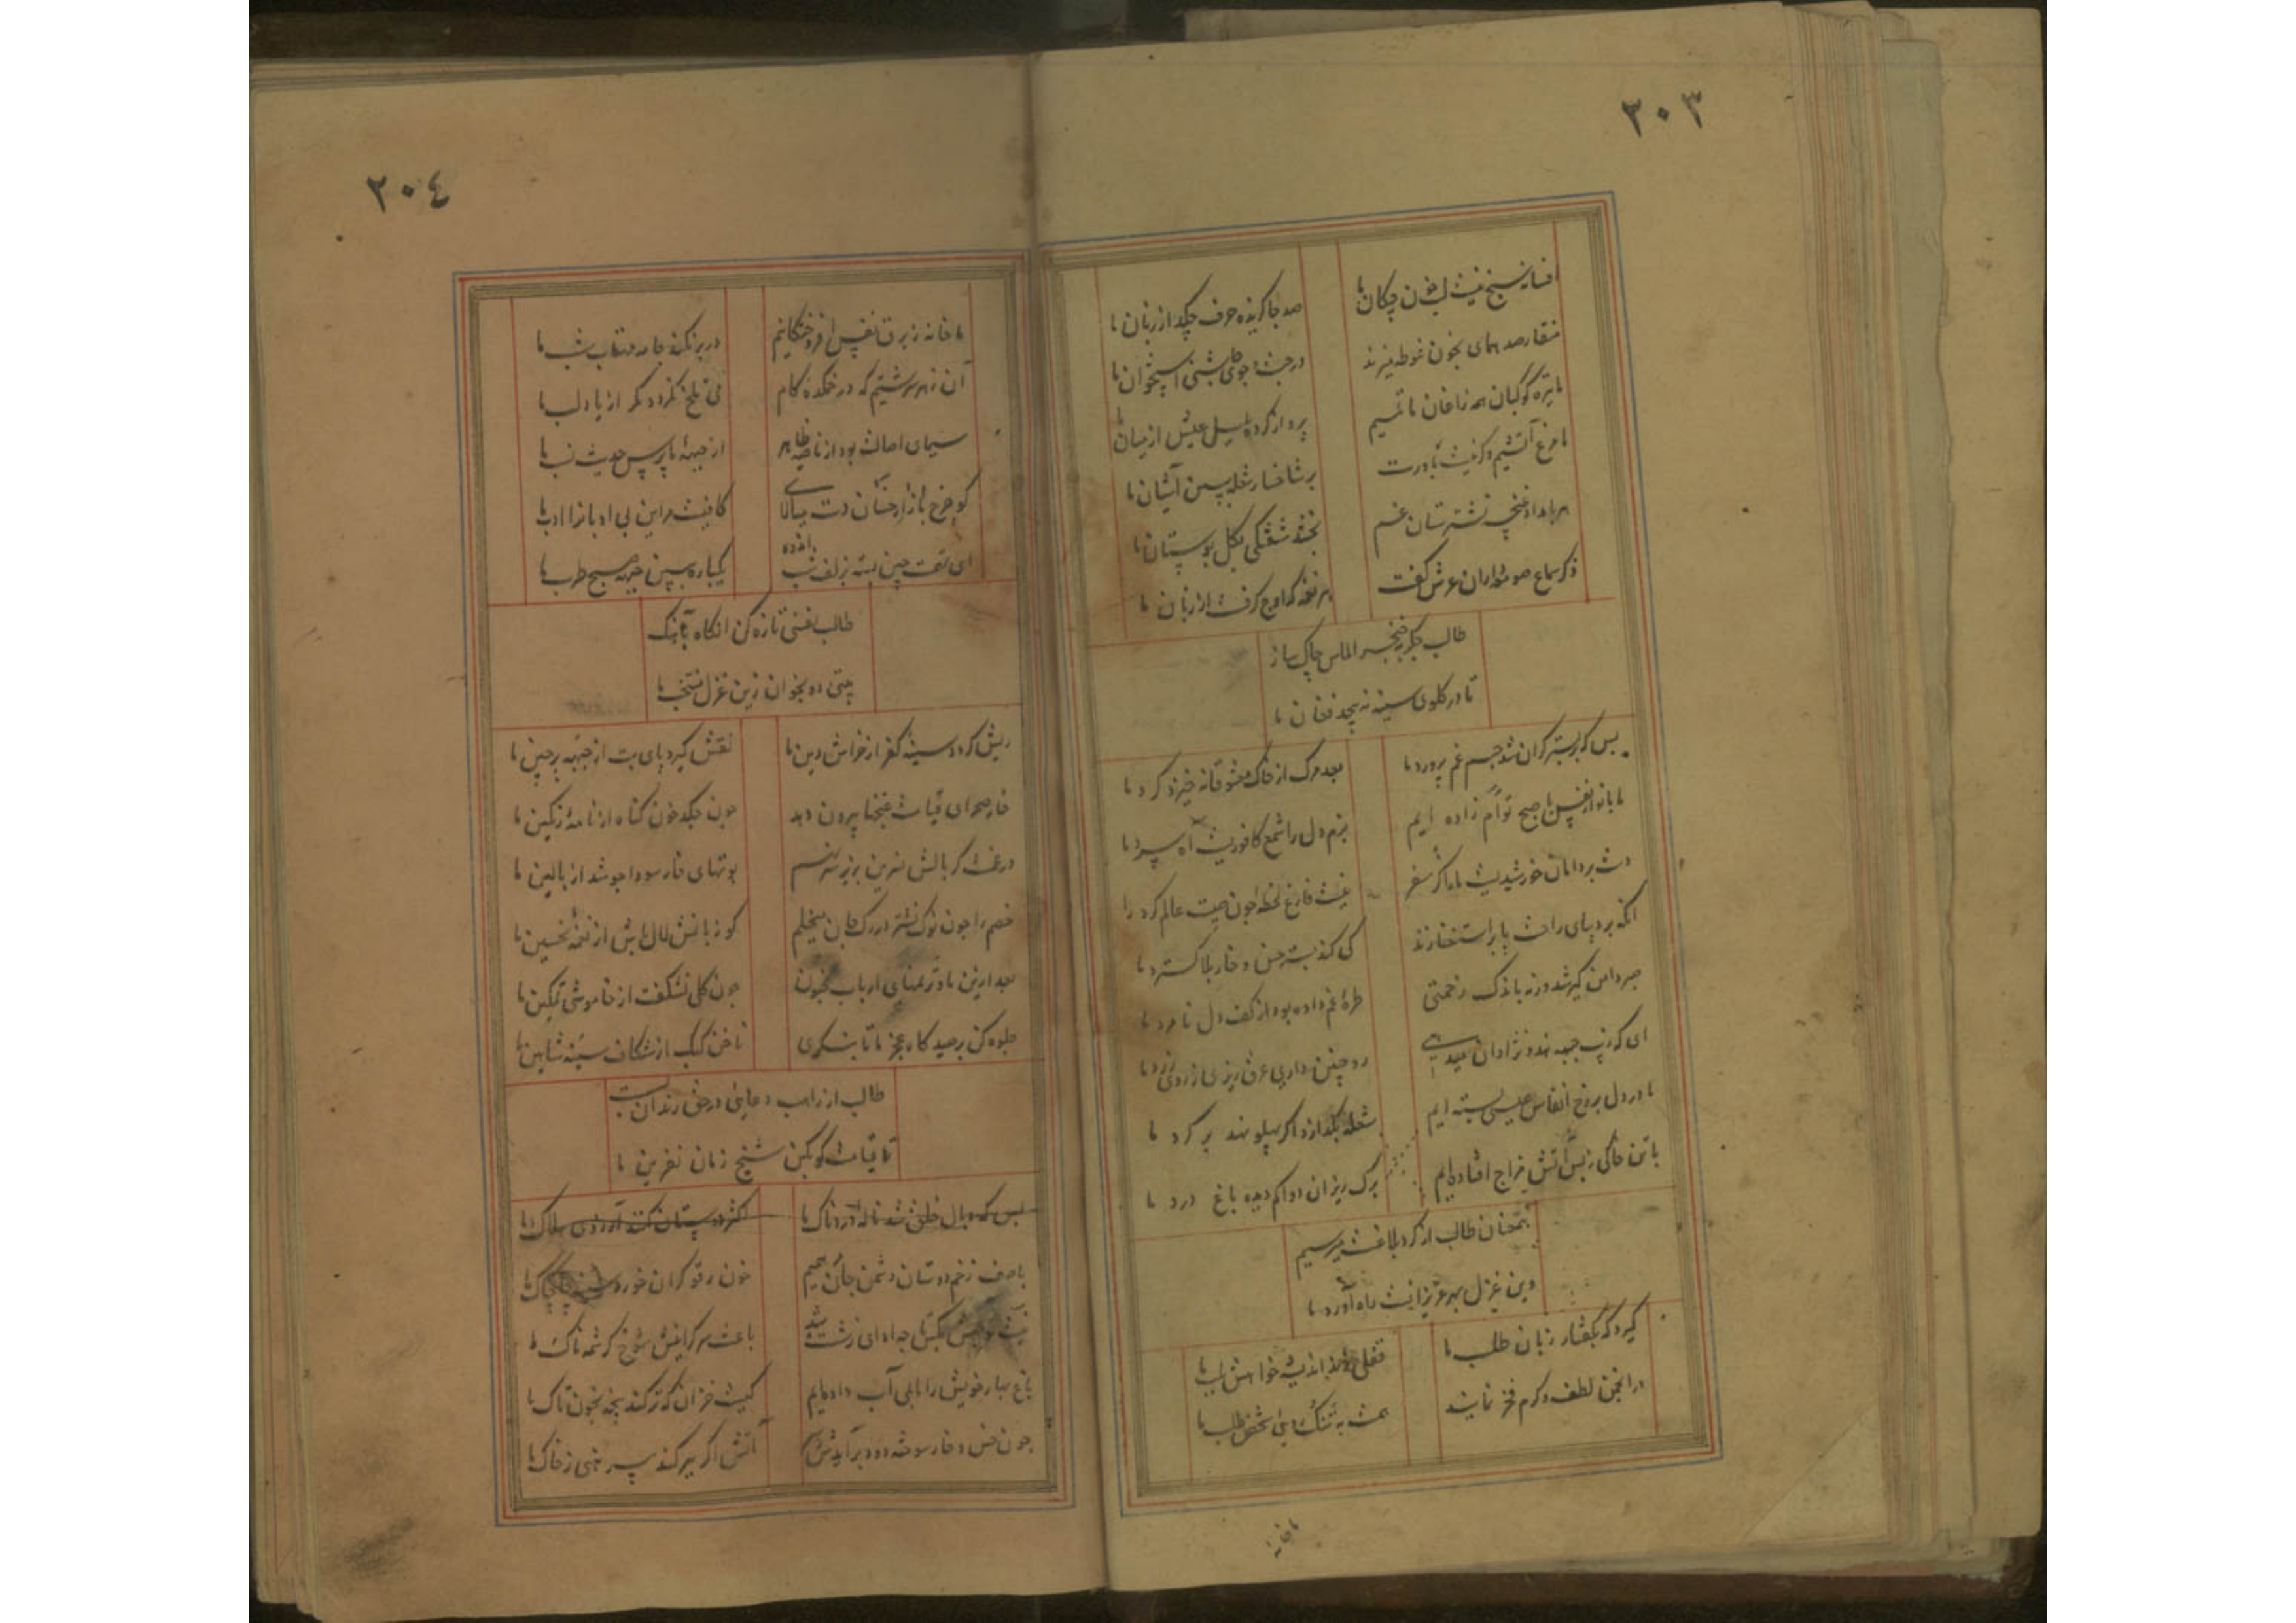 ٢٠٣
افسانه سنج نیست لب خون چکان ما
صد جا گزیده حرف چکد از زبان ما
منقار صد همای بخون غوطه میزند
در جست و جوی چاشنی استخوان ما
ما تیره کوکبان همه زاغان ماتمیم
پرواز کرده بلبل عیش از میان ما
ما مرغ آتشیم و کر نیست باورت
بر شاخسار شعله ببین آشیان ما
هر بامداد غنچه نشترستان غم
خندد شکفتگی بگل بوستان ما
ذکر سماع صومعه داران عرش گفت
هر نغمه که اوج گرفت از زبان ما
طالب جگر بخنجر الماس چاک ساز
تا در کلوی سینه نه پیچد فغان ما
بس که بر بستر گران شد جسم غم پرورد ما
بعد مرگ از خاک معشوقانه خیزد گرد ما
ما بانداز نفس با صبح توأم زاده ایم
بزم دل را شمع کافوریست آه سرد ما
دست بر دامان خورشیدیست ما را در سفر
نیست فارغ لحظه چون صیت عالم گرد ما
انکه بر دیبای راحت پا بر استغنا زند
کی کند بستر خس و خار بلا گسترد ما
صبر دامن گیر شد ورنه باندک زخمتی
طره غم داده بود از کف دل نامرد ما
ای که زیب جبهه هندو نژادان میدهی
رو چنین داری عرق ریزی از روی زرد ما
ما در دل بر رخ انفاس عیسی بسته ایم
شعله بگدازد اگر پهلو نهد بر گرد ما
با تن خاکی ز بس آتش مزاج افتاده ایم
برگ ریزان دواکم دیده باغ درد ما
همچنان طالب از گرد بلاغت میرسیم
وین غزل بهر عزیزانست راه آورد ما
گیرد که بگفتار زبان طلب ما
قفلی زده اندیشه خواهش بلب ما
در انجمن لطف و کرم فخر نمایند
همت به تنک روئی شخص طلب ما
ما خانه
٢٠٤
ما خانه ز برق نفس افروختگانیم
در بر نکند جامه مهتاب شب ما
آن زهر سرشتیم که در خمکده کام
می تلخ نگردد مگر از یاد لب ما
سیمای اصالت بود از ناصیه ظاهر
از جبهه ما پرس حدیث نسب ما
گو چرخ بازار خسان دست میالای
کافیست مر این بی ادبانرا ادب ما
ای تهمت چین بسته بزلف شب اندوه
یکباره ببین جبهه صبح طرب ما
طالب نفسی تازه کن انگاه بآهنگ
بیتی دو بخوان زین غزل منتخب ما
ریش گردد سینه کفر از خراش دین ما
نقش گیرد پای بت از جبهه پرچین ما
خار صحرای قیامت غنچها بیرون دهد
چون چکد خون گناه از نامه رنگین ما
در غمت گر بالش نسرین بزیر سر نهیم
بوتهای خار سودا جوشد از بالین ما
خصم را چون نوک نشتر در رگ جان میخلیم
گو زبانش لال باش از نغمه تحسین ما
بعد ازین ما و تمنای ارباب جنون
چون گلی نشکفت از خاموشی تمکین ما
جلوه کن بر صیدگاه عجز ما تا بنگری
ناخن کبک از شکاف سینه شاهین ما
طالب از راهب دعایی در حق رندان بست
تا قیامت گو بکن شیخ زمان نفرین ما
بس که وبال خلق شد ناله دردناک ما
اکثر دوستان کنند آرزوی هلاک ما
با صرف زخم دوستان دشمن جان مرهمیم
خون رفوگران خورد سینه چاک چاک ما
باعث سرگرانیش شوخ کرشمه ناک ما
باغ بهار خویش را ما بلبی آب داده ایم
کیست خزان که تر کند پنجه بخون تاک ما
چون خس و خار سوخته دود برآیدش
آتش اگر ببر کند پیرهنی ز خاک ما